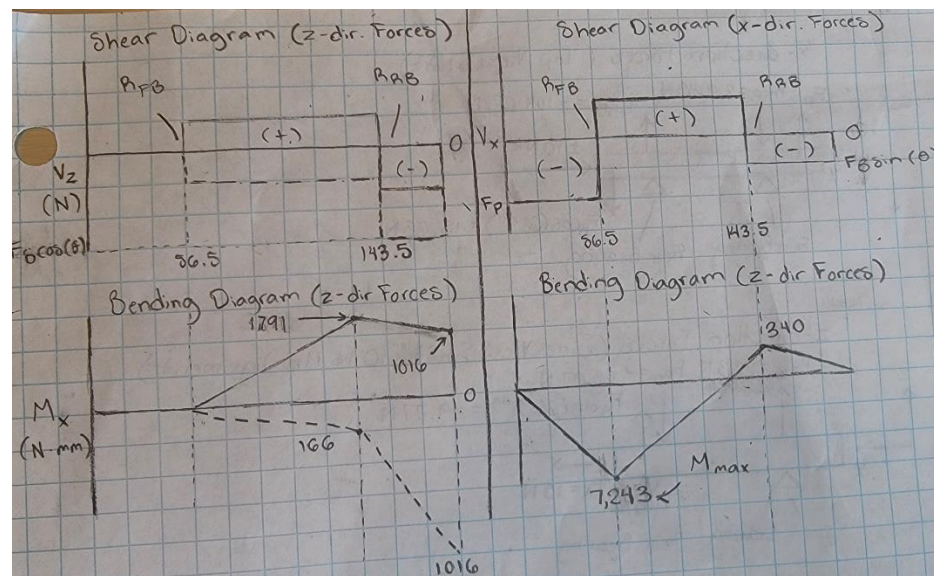 Shear Diagram (z-dir. Forces)
RFB
RRB
(+)
(-)
0
Vz
(N)
86.5
143.5
Bending Diagram (z-dir Forces)
1291
1016
0
Mx
(N-mm)
166
1016
Shear Diagram (x-dir. Forces)
RFB
RRB
Vx
(+)
(-)
(-)
0
FBsin(θ)
FP
86.5
143.5
Bending Diagram (z-dir Forces)
340
Mmax
7,243